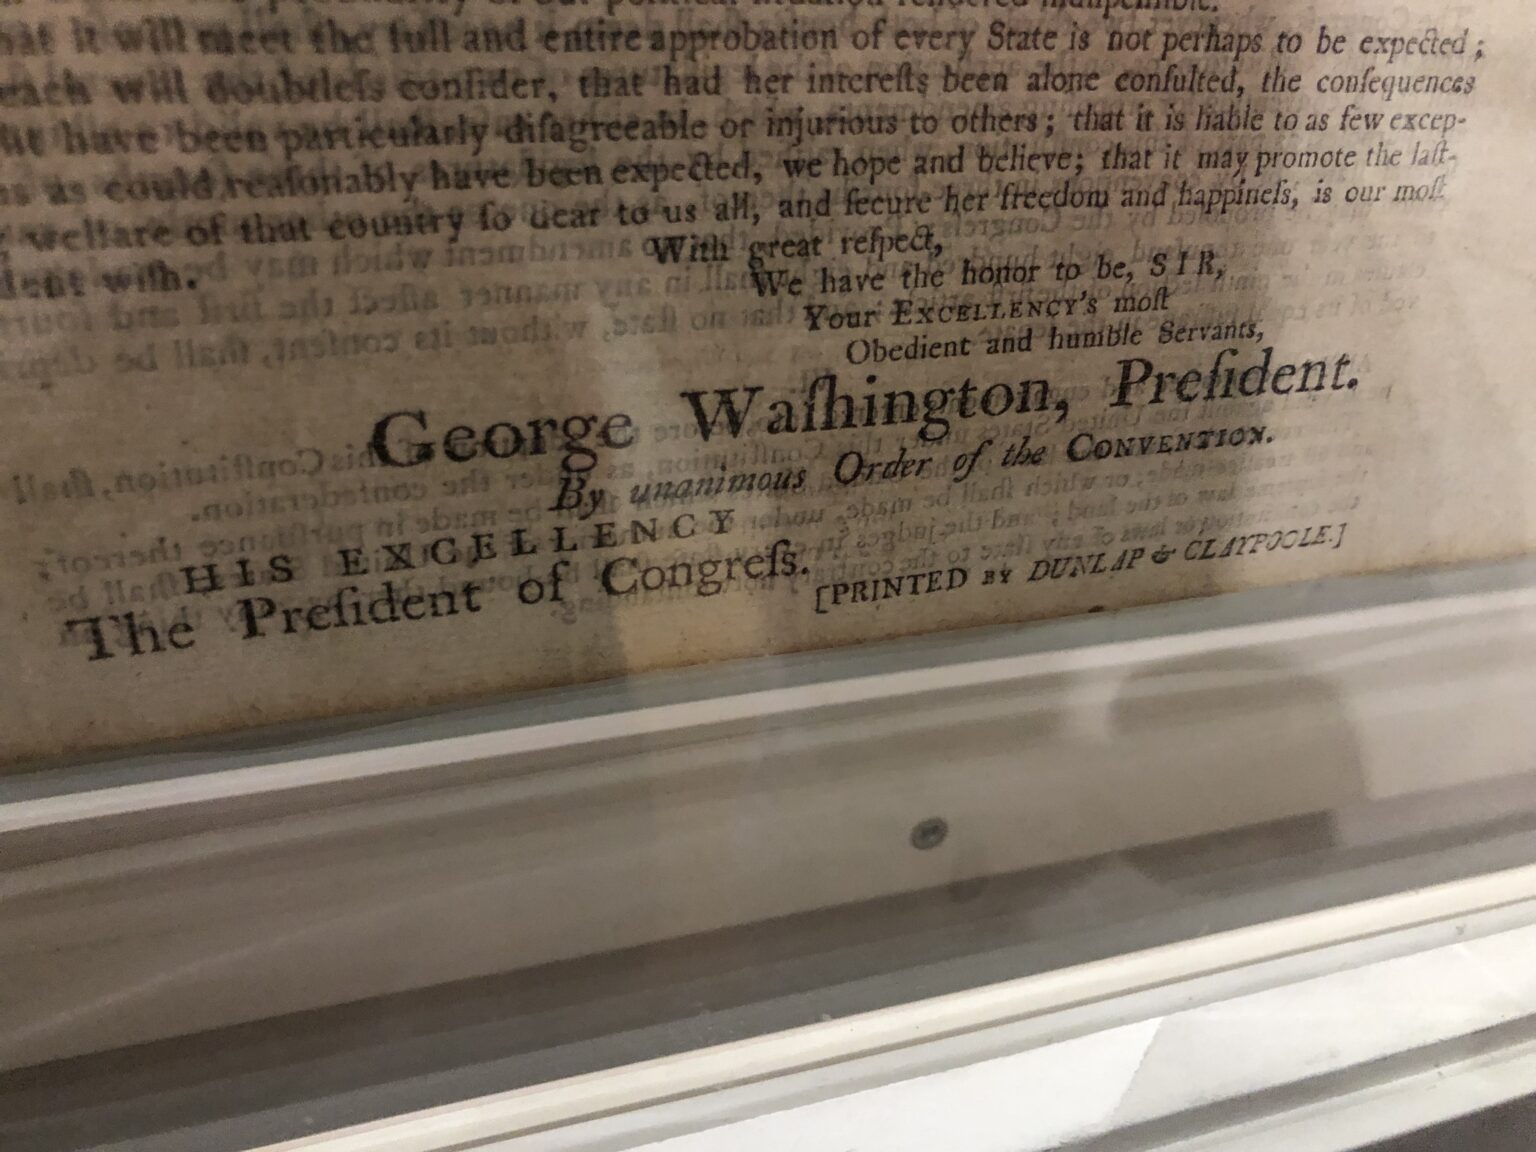 of our political situation rendered indispensible.
hat it will meet the full and entire approbation of every State is not perhaps to be expected;
each will doubtleſs conſider, that had her intereſts been alone conſulted, the conſequences
have been particularly diſagreeable or injurious to others; that it is liable to as few excep-
ns as could reaſonably have been expected, we hope and believe; that it may promote the laſt-
g welfare of that country ſo dear to us all, and ſecure her freedom and happineſs, is our moſt
dent wiſh.
With great reſpect,
We have the honor to be, SIR,
Your EXCELLENCY'S moſt
Obedient and humble Servants,
George Waſhington, Preſident.
By unanimous Order of the CONVENTION.
HIS EXCELLENCY
The Preſident of Congreſs.
[PRINTED BY DUNLAP & CLAYPOOLE.]